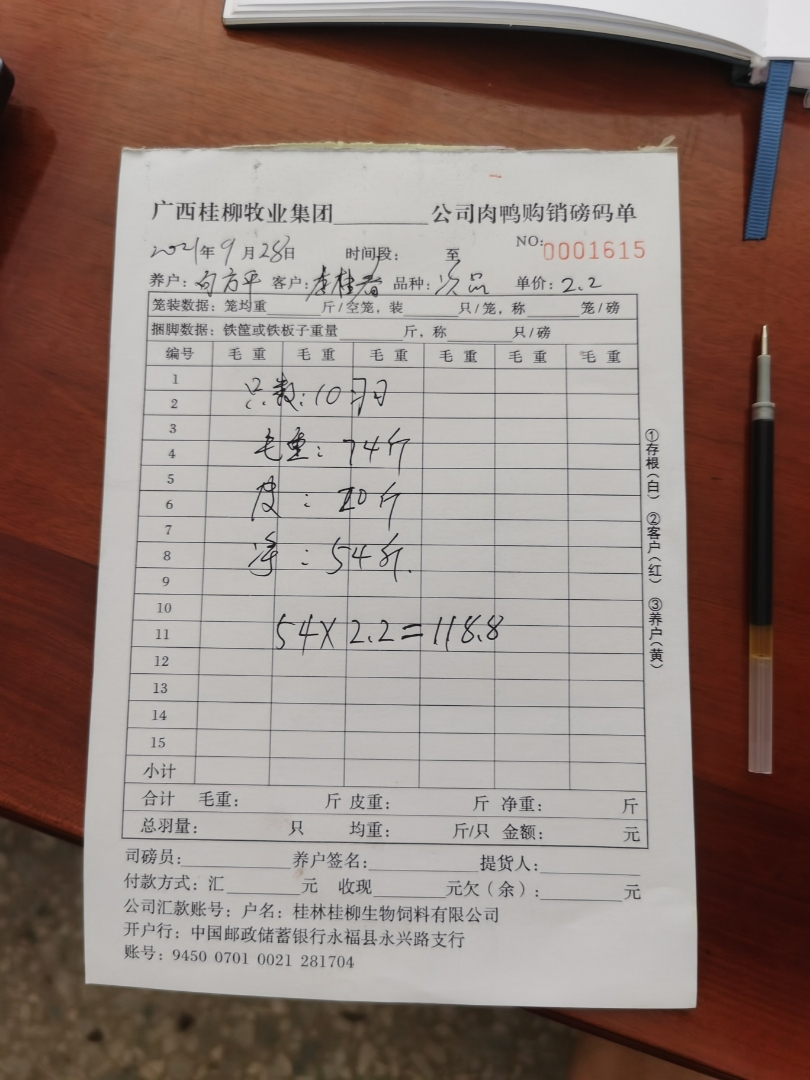 广西桂柳牧业集团________公司肉鸭购销磅码单
NO:0001615
2021年9月28日 时间段: 至
养户: 方平 客户: 李桂春 品种: 次品 单价: 2.2
笼装数据: 笼均重______斤/空笼, 装______只/笼, 称______笼/磅
捆脚数据: 铁筐或铁板子重量______斤, 称______只/磅
编号 毛重 毛重 毛重 毛重 毛重 毛重
1
只数: 10羽
2
3
毛重: 74斤
4
5
皮: 20斤
6
7
净: 54斤.
8
9
10
54×2.2=118.8
11
12
13
14
15
小计
合计 毛重: 斤 皮重: 斤 净重: 斤
总羽量: 只 均重: 斤/只 金额: 元
司磅员:________养户签名:________提货人:________
付款方式: 汇______元 收现______元欠(余):______元
公司汇款账号: 户名: 桂林桂柳生物饲料有限公司
开户行: 中国邮政储蓄银行永福县永兴路支行
账号: 9450 0701 0021 281704
①存根(白) ②客户(红) ③养户(黄)